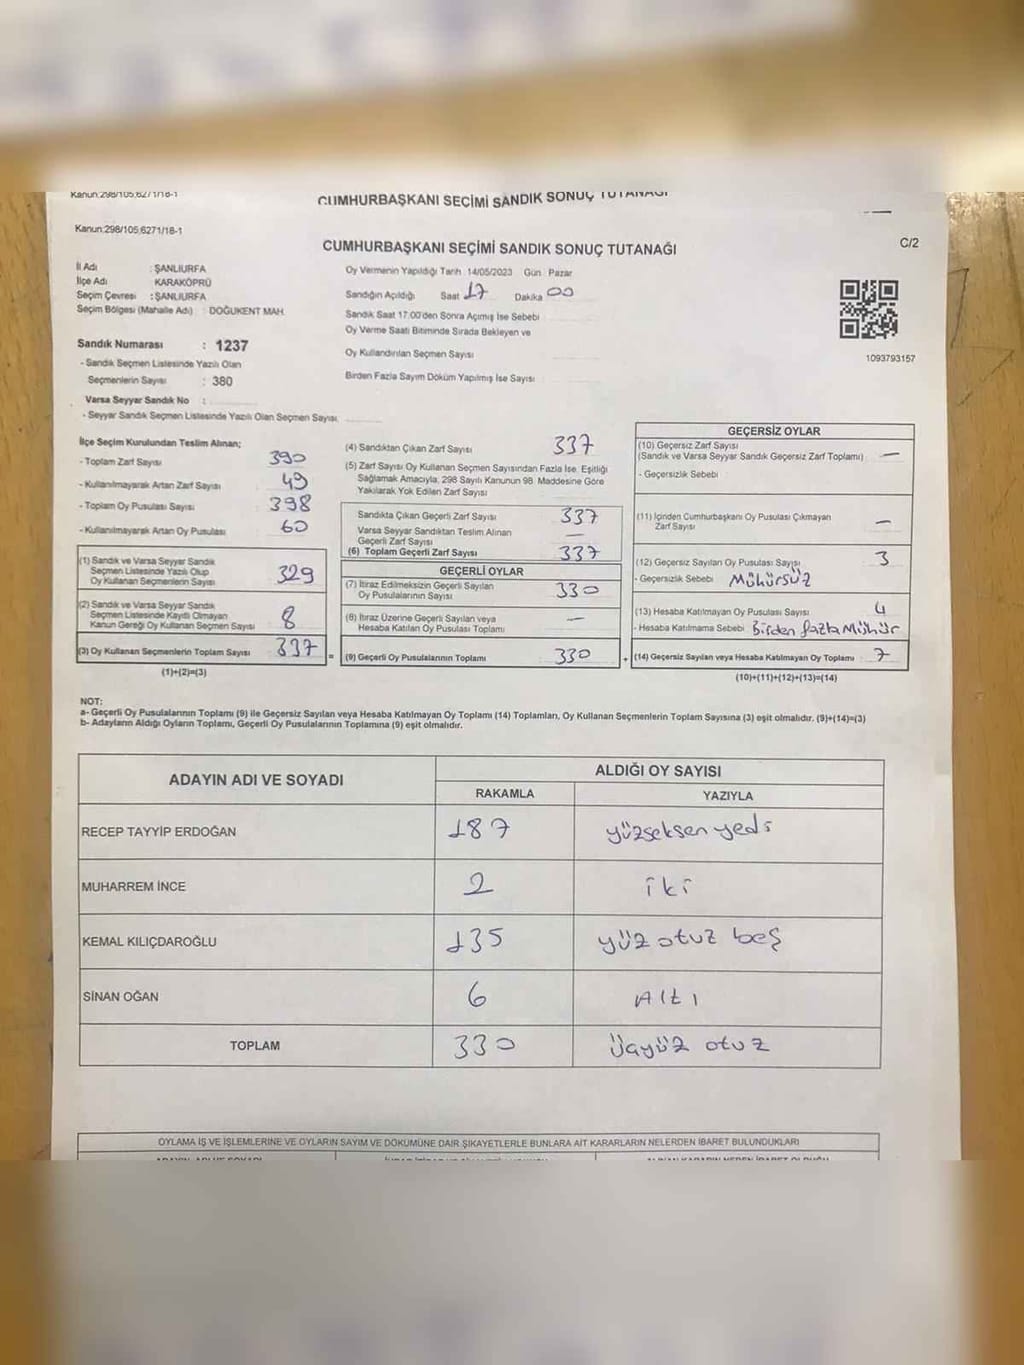 Kanun:298/105,6271/18-1
CUMHURBAŞKANI SEÇİMİ SANDIK SONUÇ TUTANAĞI
Kanun:298/105,6271/18-1
CUMHURBAŞKANI SEÇİMİ SANDIK SONUÇ TUTANAĞI
C/2
İl Adı : ŞANLIURFA
İlçe Adı KARAKÖPRÜ
Seçim Çevresi : ŞANLIURFA
Seçim Bölgesi (Mahalle Adı) : DOĞUKENT MAH.
Sandık Numarası : 1237
- Sandık Seçmen Listesinde Yazılı Olan
Seçmenlerin Sayısı : 380
Varsa Seyyar Sandık No :
- Seyyar Sandık Seçmen Listesinde Yazılı Olan Seçmen Sayısı
Oy Vermenin Yapıldığı Tarih 14/05/2023 Gün Pazar
Sandığın Açıldığı Saat 17 Dakika 00
Sandık Saat 17.00'den Sonra Açımış İse Sebebi
Oy Verme Saati Bitiminde Sırada Bekleyen ve
Oy Kullandırılan Seçmen Sayısı
Birden Fazla Sayım Döküm Yapılmış İse Sayısı
1093793157
İlçe Seçim Kurulundan Teslim Alınan;
- Toplam Zarf Sayısı 390
- Kullanılmayarak Artan Zarf Sayısı 49
- Toplam Oy Pusulası Sayısı 398
- Kullanılmayarak Artan Oy Pusulası 60
(1) Sandık ve Varsa Seyyar Sandık
Seçmen Listesinde Yazılı Olup
Oy Kullanan Seçmenlerin Sayısı 329
(2) Sandık ve Varsa Seyyar Sandık
Seçmen Listesinde Kayıtlı Olmayan
Kanun Gereği Oy Kullanan Seçmen Sayısı 8
(3) Oy Kullanan Seçmenlerin Toplam Sayısı 337 =
(1)+(2)=(3)
(4) Sandıktan Çıkan Zarf Sayısı 337
(5) Zarf Sayısı Oy Kullanan Seçmen Sayısından Fazla İse, Eşitliği
Sağlamak Amacıyla, 298 Sayılı Kanunun 98. Maddesine Göre
Yakılarak Yok Edilen Zarf Sayısı
Sandıkta Çıkan Geçerli Zarf Sayısı 337
Varsa Seyyar Sandıktan Teslim Alınan
Geçerli Zarf Sayısı —
(6) Toplam Geçerli Zarf Sayısı 337
GEÇERLİ OYLAR
(7) İtiraz Edilmeksizin Geçerli Sayılan
Oy Pusulalarının Sayısı 330
(8) İtiraz Üzerine Geçerli Sayılan veya
Hesaba Katılan Oy Pusulası Toplamı —
(9) Geçerli Oy Pusulalarının Toplamı 330 +
GEÇERSİZ OYLAR
(10) Geçersiz Zarf Sayısı
(Sandık ve Varsa Seyyar Sandık Geçersiz Zarf Toplamı) —
- Geçersizlik Sebebi
(11) İçinden Cumhurbaşkanı Oy Pusulası Çıkmayan
Zarf Sayısı —
(12) Geçersiz Sayılan Oy Pusulası Sayısı 3
- Geçersizlik Sebebi Mühürsüz
(13) Hesaba Katılmayan Oy Pusulası Sayısı 4
- Hesaba Katılmama Sebebi Birden fazla Mühür
(14) Geçersiz Sayılan veya Hesaba Katılmayan Oy Toplamı 7
(10)+(11)+(12)+(13)=(14)
NOT:
a- Geçerli Oy Pusulalarının Toplamı (9) ile Geçersiz Sayılan veya Hesaba Katılmayan Oy Toplamı (14) Toplamları, Oy Kullanan Seçmenlerin Toplam Sayısına (3) eşit olmalıdır. (9)+(14)=(3)
b- Adayların Aldığı Oyların Toplamı, Geçerli Oy Pusulalarının Toplamına (9) eşit olmalıdır.
ADAYIN ADI VE SOYADI
ALDIĞI OY SAYISI
RAKAMLA YAZIYLA
RECEP TAYYİP ERDOĞAN 187 yüzseksen yedi
MUHARREM İNCE 2 iki
KEMAL KILIÇDAROĞLU 135 yüz otuz beş
SİNAN OĞAN 6 Altı
TOPLAM 330 üçyüz otuz
OYLAMA İŞ VE İŞLEMLERİNE VE OYLARIN SAYIM VE DÖKÜMÜNE DAİR ŞİKAYETLERLE BUNLARA AİT KARARLARIN NELERDEN İBARET BULUNDUKLARI